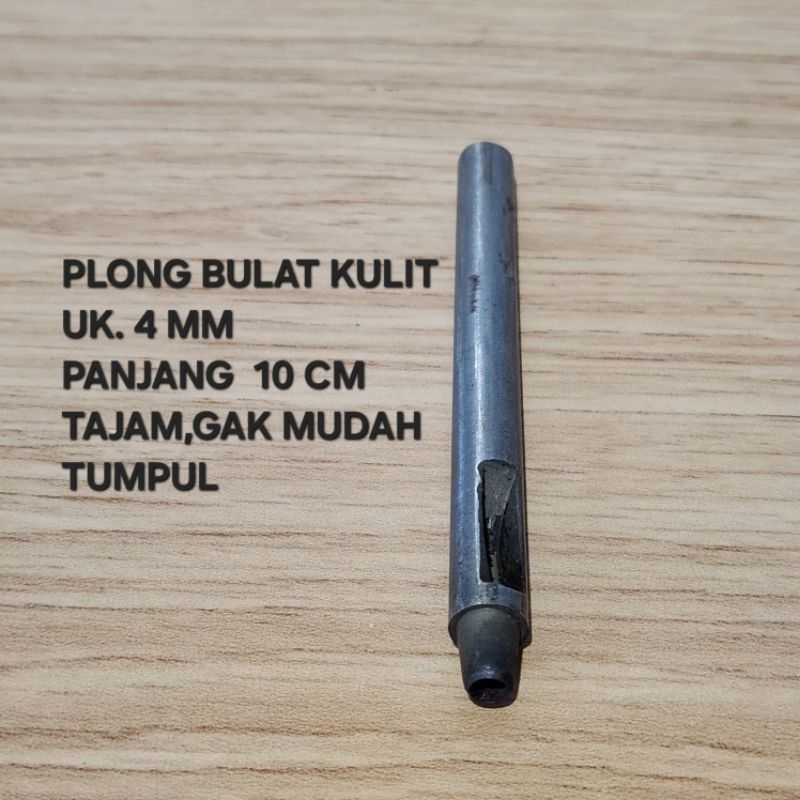 PLONG BULAT KULIT
UK. 4 MM
PANJANG  10 CM
TAJAM,GAK MUDAH
TUMPUL